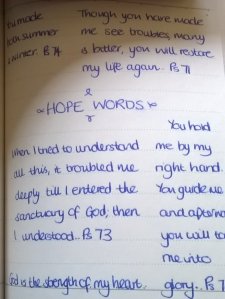 made
both summer
winter. Ps 74
Though you have made
me see troubles, many
& bitter, you will restore
my life again. Ps 71
HOPE WORDS
When I tried to understand
all this, it troubled me
deeply till I entered the
sanctuary of God; then
I understood.. Ps 73
You hold
me by my
right hand.
You guide me
and
you will
me into
glory.. Ps
God is the strength of my heart.